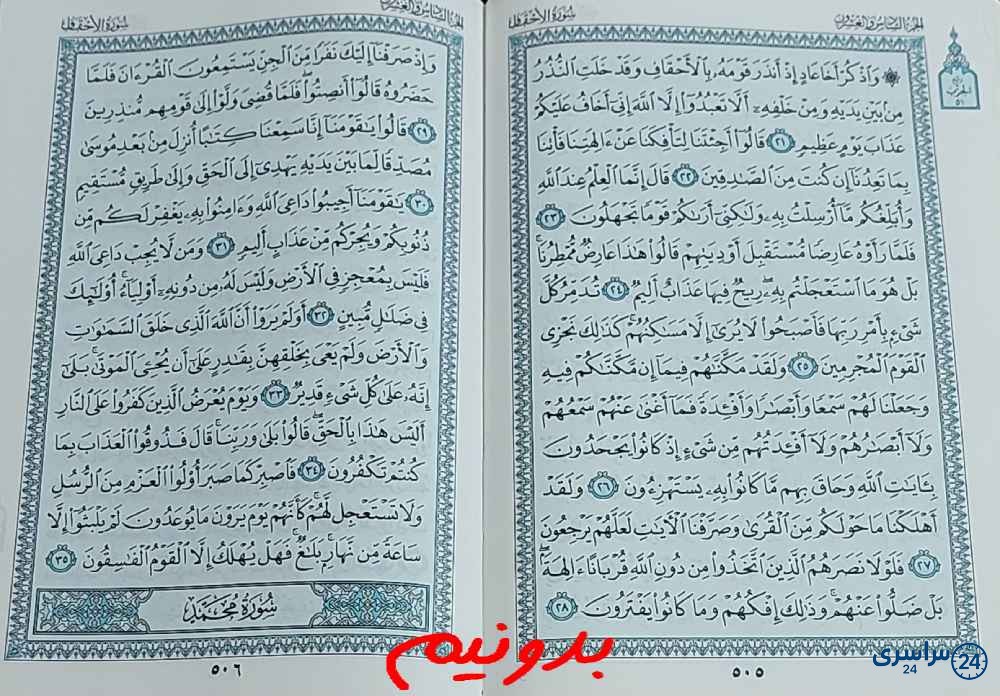 الجزء السادس والعشرون
سورة الأحقاف
۞ وَٱذۡكُرۡ أَخَا عَادٍ إِذۡ أَنذَرَ قَوۡمَهُۥ بِٱلۡأَحۡقَافِ وَقَدۡ خَلَتِ ٱلنُّذُرُ
مِنۢ بَيۡنِ يَدَيۡهِ وَمِنۡ خَلۡفِهِۦٓ أَلَّا تَعۡبُدُوٓاْ إِلَّا ٱللَّهَ إِنِّيٓ أَخَافُ عَلَيۡكُمۡ
عَذَابَ يَوۡمٍ عَظِيمٖ ٢١ قَالُوٓاْ أَجِئۡتَنَا لِتَأۡفِكَنَا عَنۡ ءَالِهَتِنَا فَأۡتِنَا
بِمَا تَعِدُنَآ إِن كُنتَ مِنَ ٱلصَّٰدِقِينَ ٢٢ قَالَ إِنَّمَا ٱلۡعِلۡمُ عِندَ ٱللَّهِ
وَأُبَلِّغُكُم مَّآ أُرۡسِلۡتُ بِهِۦ وَلَٰكِنِّيٓ أَرَىٰكُمۡ قَوۡمٗا تَجۡهَلُونَ ٢٣
فَلَمَّا رَأَوۡهُ عَارِضٗا مُّسۡتَقۡبِلَ أَوۡدِيَتِهِمۡ قَالُواْ هَٰذَا عَارِضٞ مُّمۡطِرُنَاۚ
بَلۡ هُوَ مَا ٱسۡتَعۡجَلۡتُم بِهِۦۖ رِيحٞ فِيهَا عَذَابٌ أَلِيمٞ ٢٤ تُدَمِّرُ كُلَّ
شَيۡءِۭ بِأَمۡرِ رَبِّهَا فَأَصۡبَحُواْ لَا يُرَىٰٓ إِلَّا مَسَٰكِنُهُمۡۚ كَذَٰلِكَ نَجۡزِي
ٱلۡقَوۡمَ ٱلۡمُجۡرِمِينَ ٢٥ وَلَقَدۡ مَكَّنَّٰهُمۡ فِيمَآ إِن مَّكَّنَّٰكُمۡ فِيهِ
وَجَعَلۡنَا لَهُمۡ سَمۡعٗا وَأَبۡصَٰرٗا وَأَفۡـِٔدَةٗ فَمَآ أَغۡنَىٰ عَنۡهُمۡ سَمۡعُهُمۡ
وَلَآ أَبۡصَٰرُهُمۡ وَلَآ أَفۡـِٔدَتُهُم مِّن شَيۡءٍ إِذۡ كَانُواْ يَجۡحَدُونَ
بِـَٔايَٰتِ ٱللَّهِ وَحَاقَ بِهِم مَّا كَانُواْ بِهِۦ يَسۡتَهۡزِءُونَ ٢٦ وَلَقَدۡ
أَهۡلَكۡنَا مَا حَوۡلَكُم مِّنَ ٱلۡقُرَىٰ وَصَرَّفۡنَا ٱلۡأٓيَٰتِ لَعَلَّهُمۡ يَرۡجِعُونَ
٢٧ فَلَوۡلَا نَصَرَهُمُ ٱلَّذِينَ ٱتَّخَذُواْ مِن دُونِ ٱللَّهِ قُرۡبَانًا ءَالِهَةَۢۖ
بَلۡ ضَلُّواْ عَنۡهُمۡۚ وَذَٰلِكَ إِفۡكُهُمۡ وَمَا كَانُواْ يَفۡتَرُونَ ٢٨
٥٠٥
الحزب
٥١
الجزء السادس والعشرون
سورة الأحقاف
وَإِذۡ صَرَفۡنَآ إِلَيۡكَ نَفَرٗا مِّنَ ٱلۡجِنِّ يَسۡتَمِعُونَ ٱلۡقُرۡءَانَ فَلَمَّا
حَضَرُوهُ قَالُوٓاْ أَنصِتُواْۖ فَلَمَّا قُضِيَ وَلَّوۡاْ إِلَىٰ قَوۡمِهِم مُّنذِرِينَ
٢٩ قَالُواْ يَٰقَوۡمَنَآ إِنَّا سَمِعۡنَا كِتَٰبًا أُنزِلَ مِنۢ بَعۡدِ مُوسَىٰ
مُصَدِّقٗا لِّمَا بَيۡنَ يَدَيۡهِ يَهۡدِيٓ إِلَى ٱلۡحَقِّ وَإِلَىٰ طَرِيقٖ مُّسۡتَقِيمٖ
٣٠ يَٰقَوۡمَنَآ أَجِيبُواْ دَاعِيَ ٱللَّهِ وَءَامِنُواْ بِهِۦ يَغۡفِرۡ لَكُم مِّن
ذُنُوبِكُمۡ وَيُجِرۡكُم مِّنۡ عَذَابٍ أَلِيمٖ ٣١ وَمَن لَّا يُجِبۡ دَاعِيَ ٱللَّهِ
فَلَيۡسَ بِمُعۡجِزٖ فِي ٱلۡأَرۡضِ وَلَيۡسَ لَهُۥ مِن دُونِهِۦٓ أَوۡلِيَآءُۚ أُوْلَٰٓئِكَ
فِي ضَلَٰلٖ مُّبِينٍ ٣٢ أَوَلَمۡ يَرَوۡاْ أَنَّ ٱللَّهَ ٱلَّذِي خَلَقَ ٱلسَّمَٰوَٰتِ
وَٱلۡأَرۡضَ وَلَمۡ يَعۡيَ بِخَلۡقِهِنَّ بِقَٰدِرٍ عَلَىٰٓ أَن يُحۡـِۧيَ ٱلۡمَوۡتَىٰۚ بَلَىٰٓ
إِنَّهُۥ عَلَىٰ كُلِّ شَيۡءٖ قَدِيرٞ ٣٣ وَيَوۡمَ يُعۡرَضُ ٱلَّذِينَ كَفَرُواْ عَلَى ٱلنَّارِ
أَلَيۡسَ هَٰذَا بِٱلۡحَقِّۖ قَالُواْ بَلَىٰ وَرَبِّنَاۚ قَالَ فَذُوقُواْ ٱلۡعَذَابَ بِمَا
كُنتُمۡ تَكۡفُرُونَ ٣٤ فَٱصۡبِرۡ كَمَا صَبَرَ أُوْلُواْ ٱلۡعَزۡمِ مِنَ ٱلرُّسُلِ
وَلَا تَسۡتَعۡجِل لَّهُمۡۚ كَأَنَّهُمۡ يَوۡمَ يَرَوۡنَ مَا يُوعَدُونَ لَمۡ يَلۡبَثُوٓاْ إِلَّا
سَاعَةٗ مِّن نَّهَارِۭۚ بَلَٰغٞۚ فَهَلۡ يُهۡلَكُ إِلَّا ٱلۡقَوۡمُ ٱلۡفَٰسِقُونَ ٣٥
سورة محمد
٥٠٦
بدونیم
سراسری 24
24